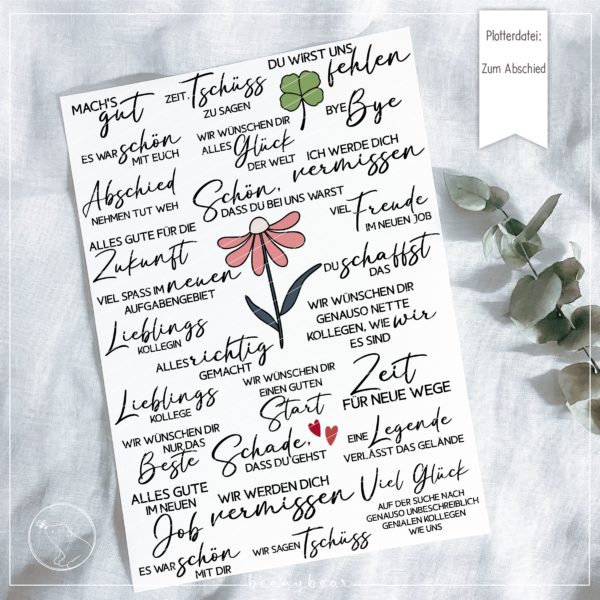 Plotterdatei:
Zum Abschied
MACH'S
gut
ZEIT, Tschüss
ZU SAGEN
DU WIRST UNS
fehlen
ES WAR schön
MIT EUCH
WIR WÜNSCHEN DIR
ALLES Glück
DER WELT
BYE Bye
ICH WERDE DICH
vermissen
Abschied
NEHMEN TUT WEH
Schön,
DASS DU BEI UNS WARST
VIEL Freude
IM NEUEN JOB
ALLES GUTE FÜR DIE
Zukunft
DU schaffst
DAS
VIEL SPASS IM neuen
AUFGABENGEBIET
WIR WÜNSCHEN DIR
GENAUSO NETTE
KOLLEGEN, WIE wir
ES SIND
Lieblings
KOLLEGIN
ALLES richtig
GEMACHT
Lieblings
KOLLEGE
WIR WÜNSCHEN DIR
EINEN GUTEN
Start
Zeit
FÜR NEUE WEGE
WIR WÜNSCHEN DIR
NUR DAS
Beste
Schade,
DASS DU GEHST
EINE Legende
VERLÄSST DAS GELÄNDE
ALLES GUTE
IM NEUEN
Job
WIR WERDEN DICH
vermissen
Viel Glück
AUF DER SUCHE NACH
GENAUSO UNBESCHREIBLICH
GENIALEN KOLLEGEN
WIE UNS
ES WAR schön
MIT DIR
WIR SAGEN Tschüss
beenybear